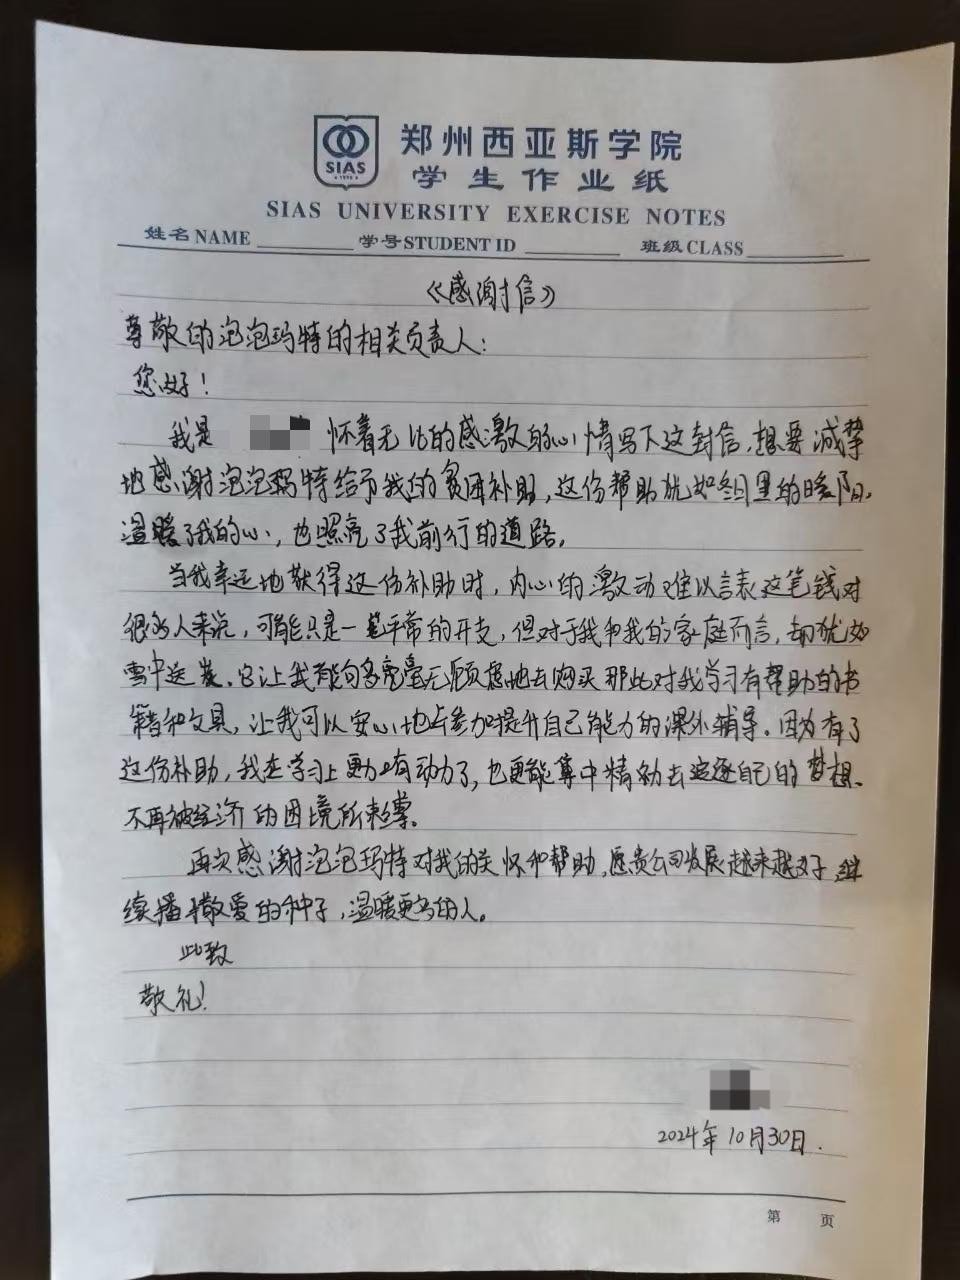 SIAS
1998
郑州西亚斯学院
学生作业纸
SIAS UNIVERSITY EXERCISE NOTES
姓名 NAME 学号 STUDENT ID 班级 CLASS
《感谢信》
尊敬的泡泡玛特的相关负责人:
您好!
我是 怀着无比的感激的心情写下这封信,想要减挚
地感谢泡泡玛特给予我的贫困补助,这份帮助犹如冬日里的暖阳,
温暖了我的心,也照亮了我前行的道路。
当我幸运地获得这份补助时,内心的激动难以言表这笔钱对
很多人来说,可能只是一笔平常的开支,但对于我和我的家庭而言,却犹如
雪中送炭。它让我能够毫无顾虑地去购买那些对我学习有帮助的书
籍和文具,让我可以安心地去参加提升自己能力的课外辅导。因为有了
这份补助,我在学习上更加有动力了,也更能集中精力去追逐自己的梦想、
不再被经济的困境所束缚。
再次感谢泡泡玛特对我的关怀和帮助,愿贵公司发展越来越好 继
续播撒爱的种子,温暖更多的人。
此致
敬礼!
2024年10月30日.
第 页